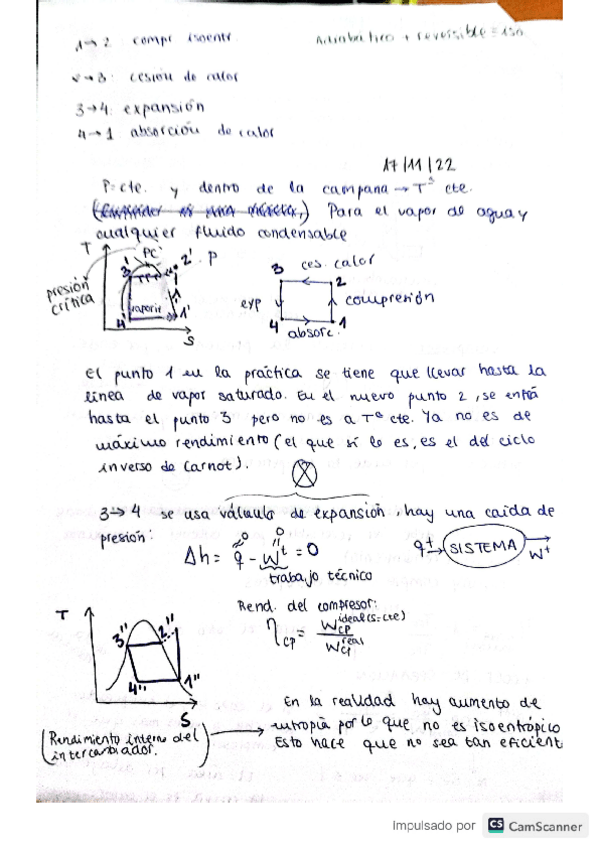 1→2 compr isoentr. Adiabático + reversible = iso
2→3: cesión de calor
3→4: expansión
4→1 absorción de calor
17/11/22
P=cte. y dentro de la campana → Tª cte.
Para el vapor de agua y
cualquier fluido condensable
T PC 2' P
3' 3 ces. calor 2
presión crítica
vaporiz exp compresión
4' 1' 4 absorc. 1
S
El punto 1 en la práctica se tiene que llevar hasta la
línea de vapor saturado. En el nuevo punto 2, se entra
hasta el punto 3 pero no es a Tª cte. Ya no es de
máximo rendimiento (el que sí lo es, es el del ciclo
inverso de Carnot).
3→4 se usa válvula de expansión, hay una caída de
presión:
Δh = q - w^t = 0 q+ SISTEMA w+
trabajo técnico
Rend. del compresor:
η_cp = W_cp^ideal (s=cte) / W_cp^real
T
3'' 2''
4'' 1''
S
En la realidad hay aumento de
(Rendimiento interno del → entropía por lo que no es isoentrópico
intercambiador.) Esto hace que no sea tan eficient
Impulsado por CS CamScanner